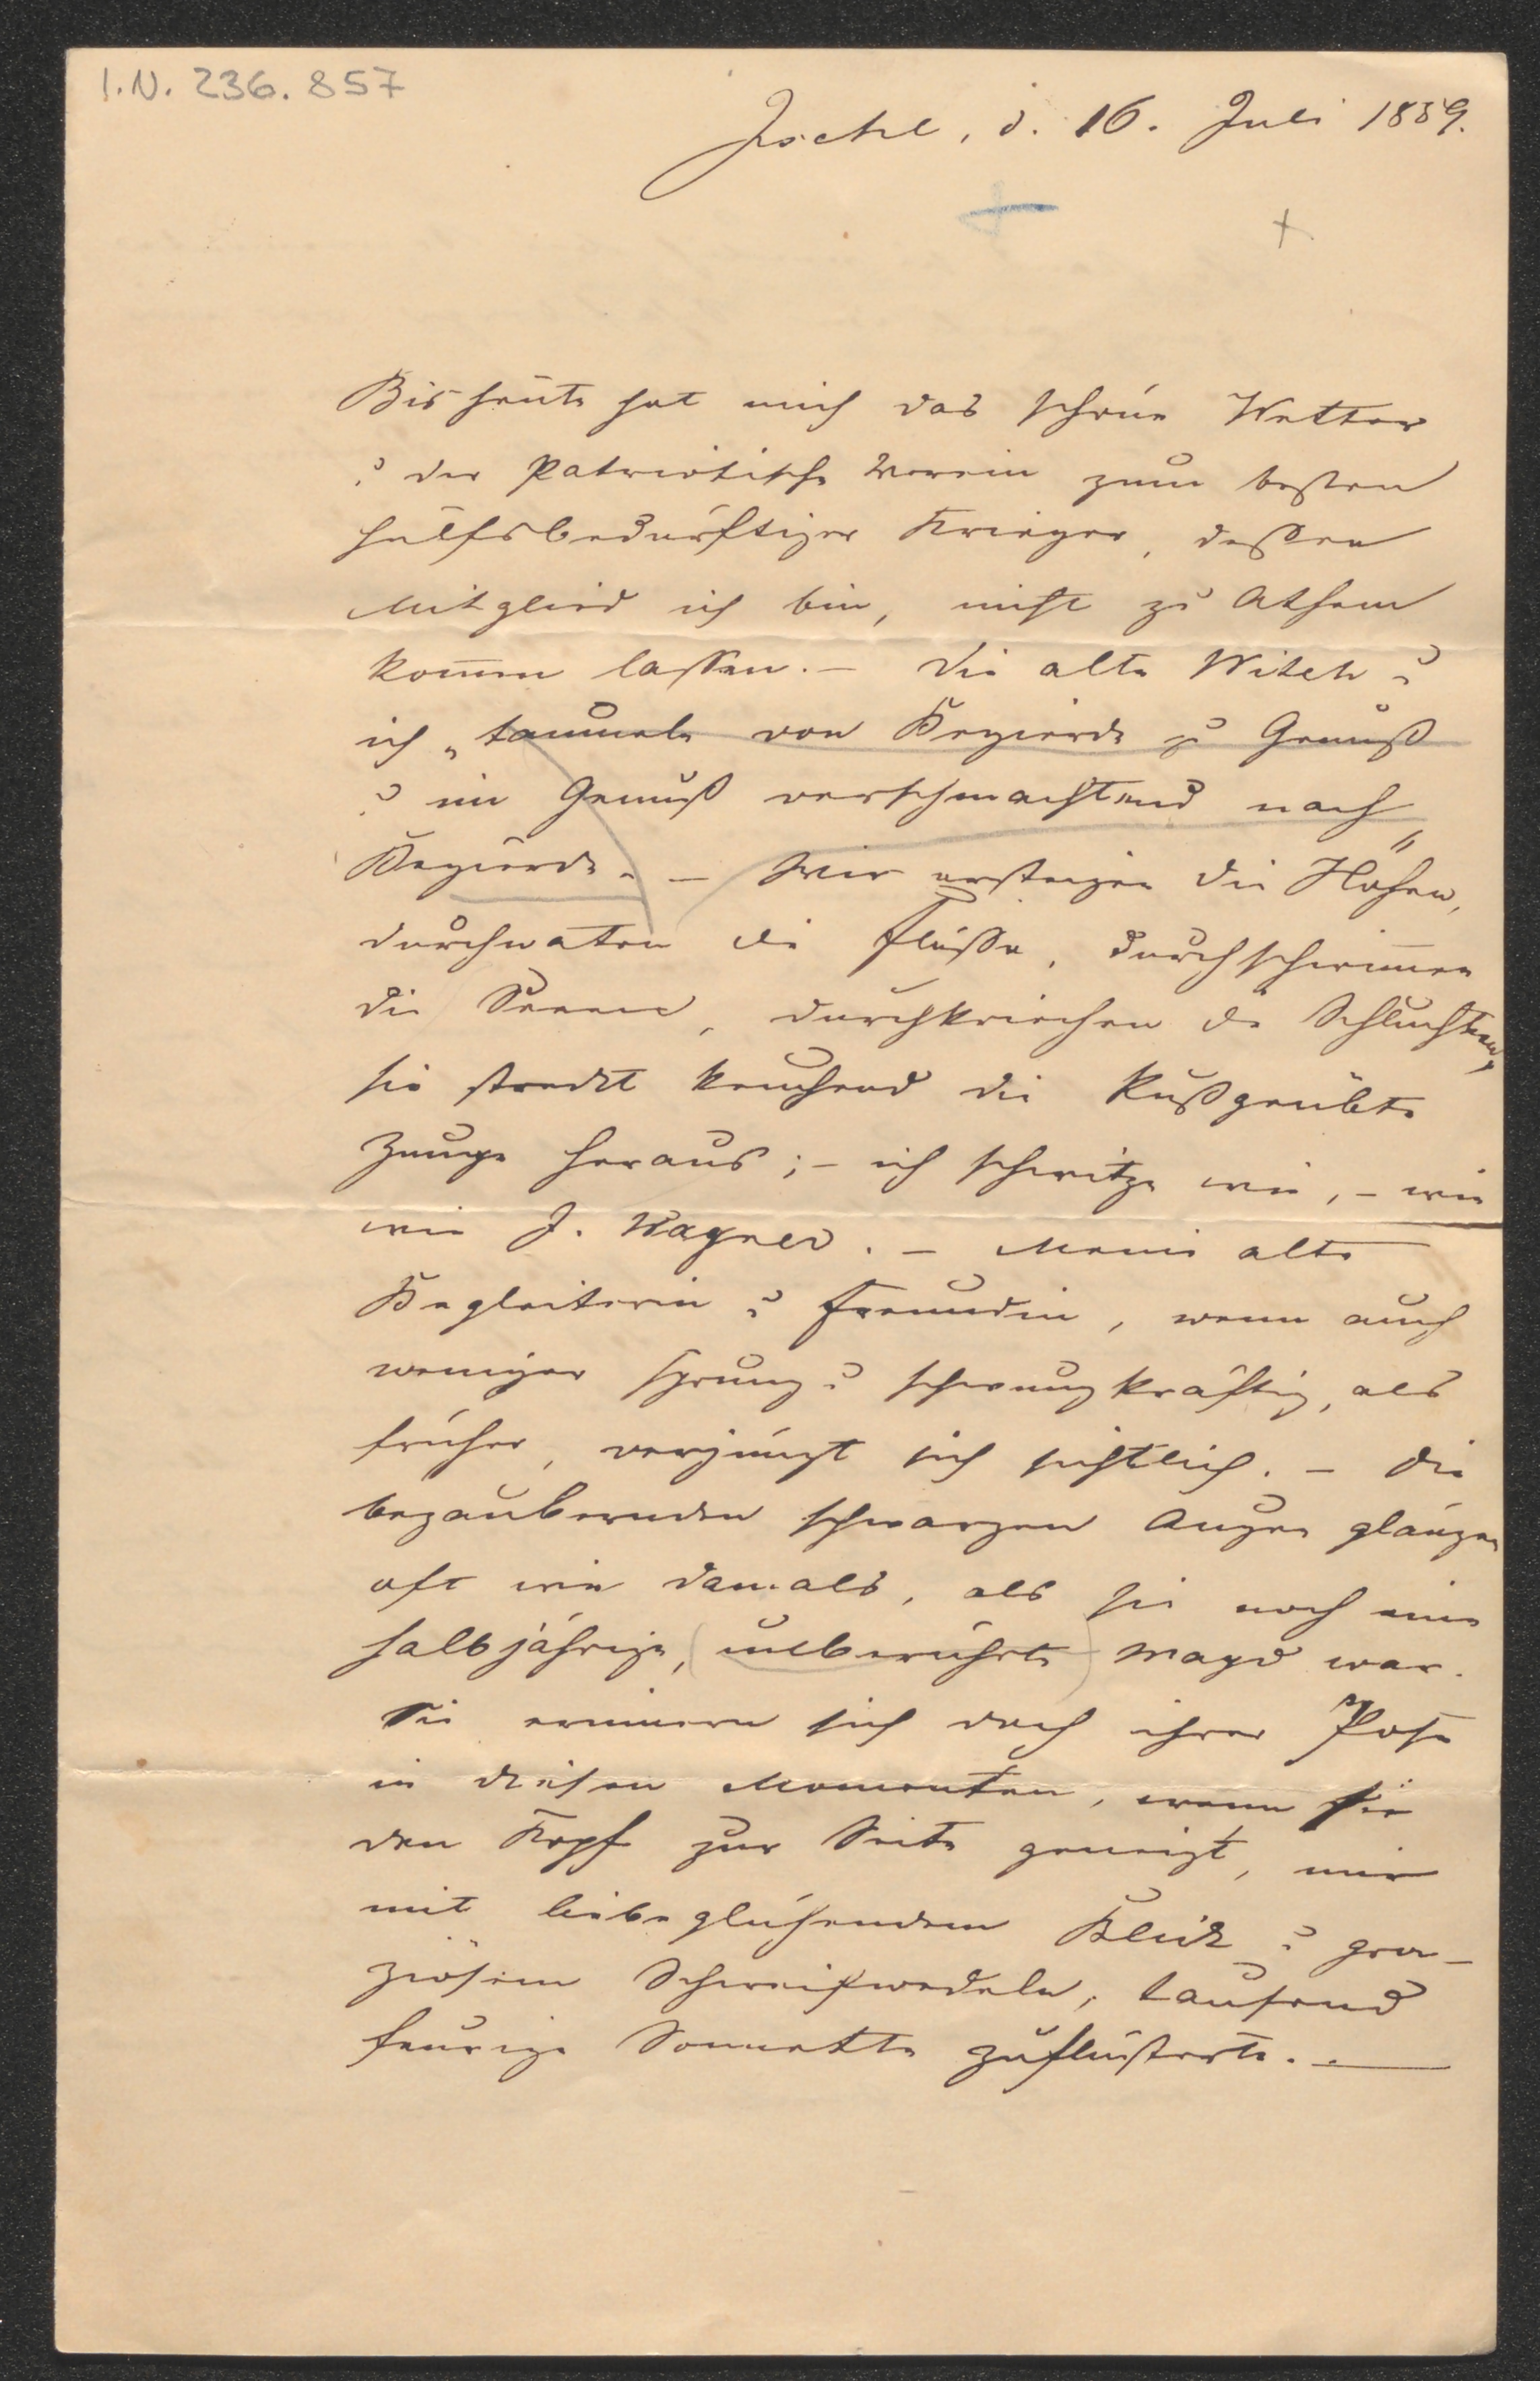 I.N. 236.857
Ischl, d. 16. Juli 1889.
Bis heute hat mich das schöne Wetter
u der Patriotische Verein zum besten
hülfsbedürftiger Krieger, dessen
Mitglied ich bin, nicht zu Athem
kom̄en lassen. – Die alte Witch u
ich „taumeln von Begierde zu Genuß
u im Genuß verschmachtend nach
Begierde." – Wir ersteigen die Höhen,
durchwaten die Flüsse, durchschwim̄en
die Seeen, durchkriechen die Schluchten,
sie streckt keuchend die kußgeübte
Zunge heraus; – ich schwitze wie, – wie
wie J. Wagner. – Meine alte
Begleiterin u Freundin, wenn auch
weniger sprung u schwungkräftig, als
früher, verjüngt sich sichtlich. – Die
bezaubernden schwarzen Augen glänzen
oft wie damals, als sie noch eine
halbjährige, unberührte Magd war.
Sie erinnern sich doch ihrer Pose
in diesen Momenten, wenn sie
den Kopf zur Seite geneigt, mir
mit liebeglühendem Blick u gra-
ziösem Schweifwedeln, tausend
feurige Sonnette zuflüsterte. –